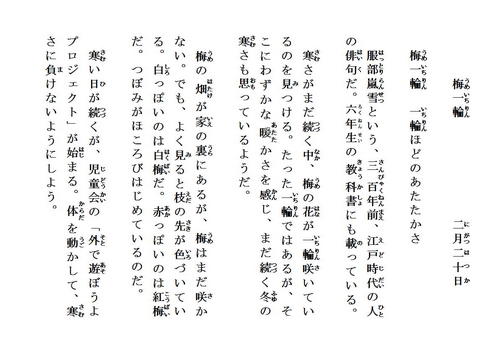 梅一輪　二月二十日
梅一輪　一輪ほどのあたたかさ
服部嵐雪という、三百年前、江戸時代の人
の俳句だ。六年生の教科書にも載っている。
寒さがまだ続く中、梅の花が一輪咲いてい
るのを見つける。たった一輪ではあるが、そ
こにわずかな暖かさを感じ、まだ続く冬の
寒さも思っているようだ。
梅の畑が家の裏にあるが、梅はまだ咲か
ない。でも、よく見ると枝の先が色づいてい
る。白っぽいのは白梅だ。赤っぽいのは紅梅
だ。つぼみがほころびはじめているのだ。
寒い日が続くが、児童会の「外で遊ぼうよ
プロジェクト」が始まる。体を動かして、寒
さに負けないようにしよう。